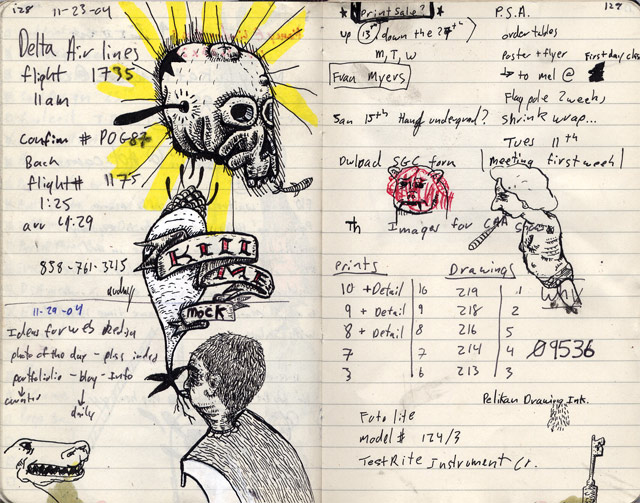 128 11-23-04
Delta Air lines
flight 1735
11am
Confirm # POG87
Back
flight # 1175
1:25
arr 4:29
858-761-3215
KILL
ME
MOCK
11-29-04
Ideas for web
photo of the day - plus index
portfolio - blog - info
daily
Print Sale?
up 13th down the 27th
M, T, W
Fran Myers
Jan 15th Hang undergrad?
Dwload SGC form
Images for CAA
Prints
10 + Detail 10
9 + Detail 9
8 + Detail 8
7 7
3 6
Drawings
219 1
218 2
216 5
214 4
213 3
P.S.A.
order tables
Poster + flyer First day class
to mel @
Flag pole 2 weeks
shrink wrap...
Tues 11th
meeting first week
why
09536
Pelikan Drawing Ink.
Futolite
model # 124/3
TestRite Instrument Co.